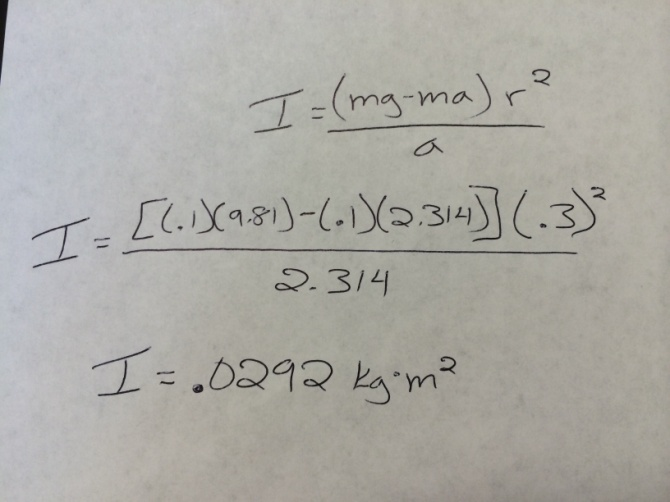 I = (mg-ma) r² / a
I = [(.1)(9.81)-(.1)(2.314)] (.3)² / 2.314
I = .0292 kg·m²